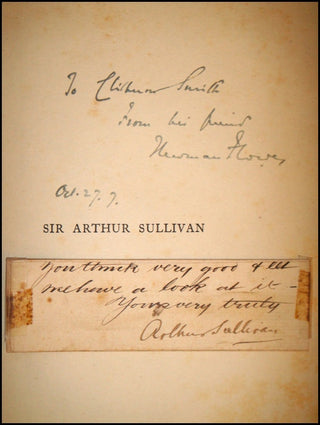 To Clishmor Smith
From his friend
Newman Flower
Oct. 27. 7.
SIR ARTHUR SULLIVAN
you think very good & let
me have a look at it -
Yours very truly
Arthur Sullivan